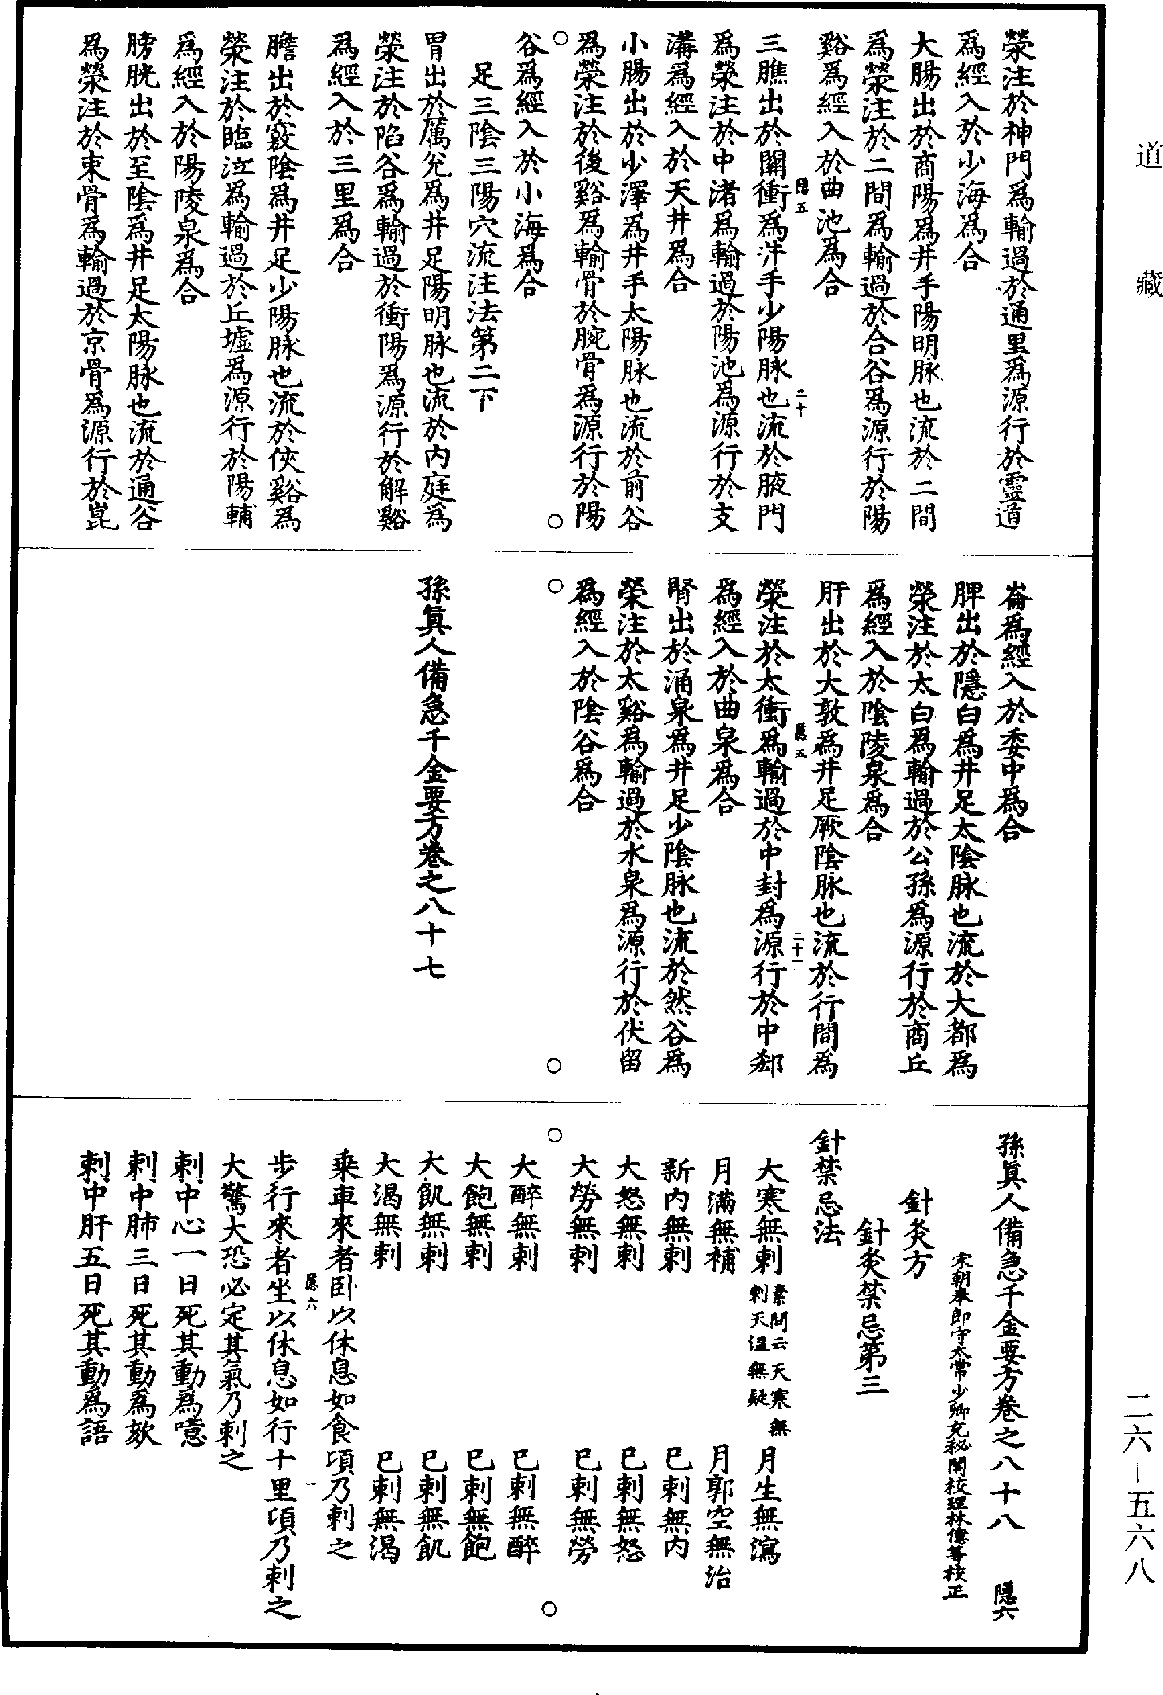 道藏
榮注於神門為輸過於通里為源行於靈道
為經入於少海為合
大腸出於商陽為井手陽明脉也流於二間
為榮注於三間為輸過於合谷為源行於陽
谿為經入於曲池為合
三膲出於關衝為井手少陽脉也流於腋門
為榮注於中渚為輸過於陽池為源行於支
溝為經入於天井為合
小腸出於少澤為井手太陽脉也流於前谷
為榮注於後谿為輸骨於腕骨為源行於陽
谷為經入於小海為合
足三陰三陽穴流注法第二下
胃出於厲兊為井足陽明脉也流於内庭為
榮注於陷谷為輸過於衝陽為源行於解谿
為經入於三里為合
膽出於竅陰為井足少陽脉也流於俠谿為
榮注於臨泣為輸過於丘墟為源行於陽輔
為經入於陽陵泉為合
膀胱出於至陰為井足太陽脉也流於通谷
為榮注於束骨為輸過於京骨為源行於崑
崙為經入於委中為合
脾出於隱白為井足太陰脉也流於大都為
榮注於太白為輸過於公孫為源行於商丘
為經入於陰陵泉為合
肝出於大敦為井足厥陰脉也流於行間為
榮注於太衝為輸過於中封為源行於中郄
為經入於曲泉為合
腎出於涌泉為井足少陰脉也流於然谷為
榮注於太谿為輸過於水泉為源行於伏留
為經入於陰谷為合
孫真人備急千金要方卷之八十七
孫真人備急千金要方卷之八十八 隱六
宋朝奉郎守太常少卿充秘閣校理林億等校正
針灸方
針灸禁忌第三
針禁忌法
大寒無刺 素問云天寒無刺天溫無疑 月生無瀉
月滿無補 月郭空無治
新内無刺 已刺無内
大怒無刺 已刺無怒
大勞無刺 已刺無勞
大醉無刺 已刺無醉
大飽無刺 已刺無飽
大飢無刺 已刺無飢
大渴無刺 已刺無渴
乘車來者卧以休息如食頃乃刺之
步行來者坐以休息如行十里頃乃刺之
大驚大恐必定其氣乃刺之
刺中心一日死其動為噫
刺中肺三日死其動為欬
刺中肝五日死其動為語
隱五
二十
隱五
二十一
隱六
一
二六—五六八